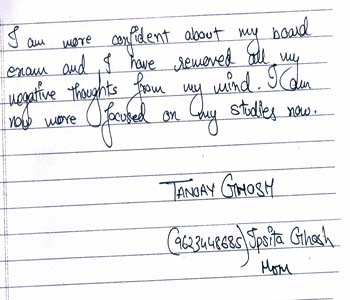 I am more confident about my board
exam and I have removed all my
negative thoughts from my mind. I am
now more focused on my studies now.
TANJAY GHOSH
(9623448685) Ipsita Ghosh
Mom